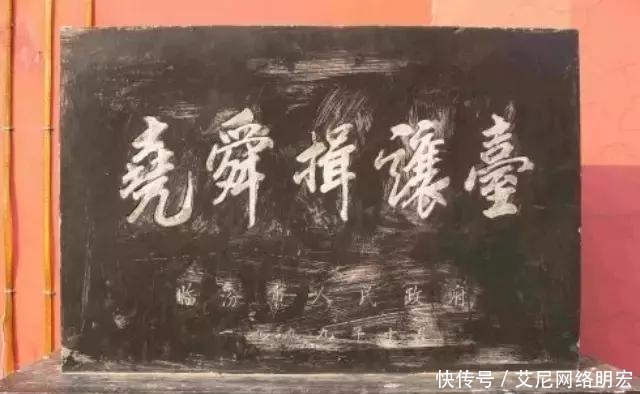 堯舜揖讓臺
临汾市人民政府
快传号／艾尼网络明宏